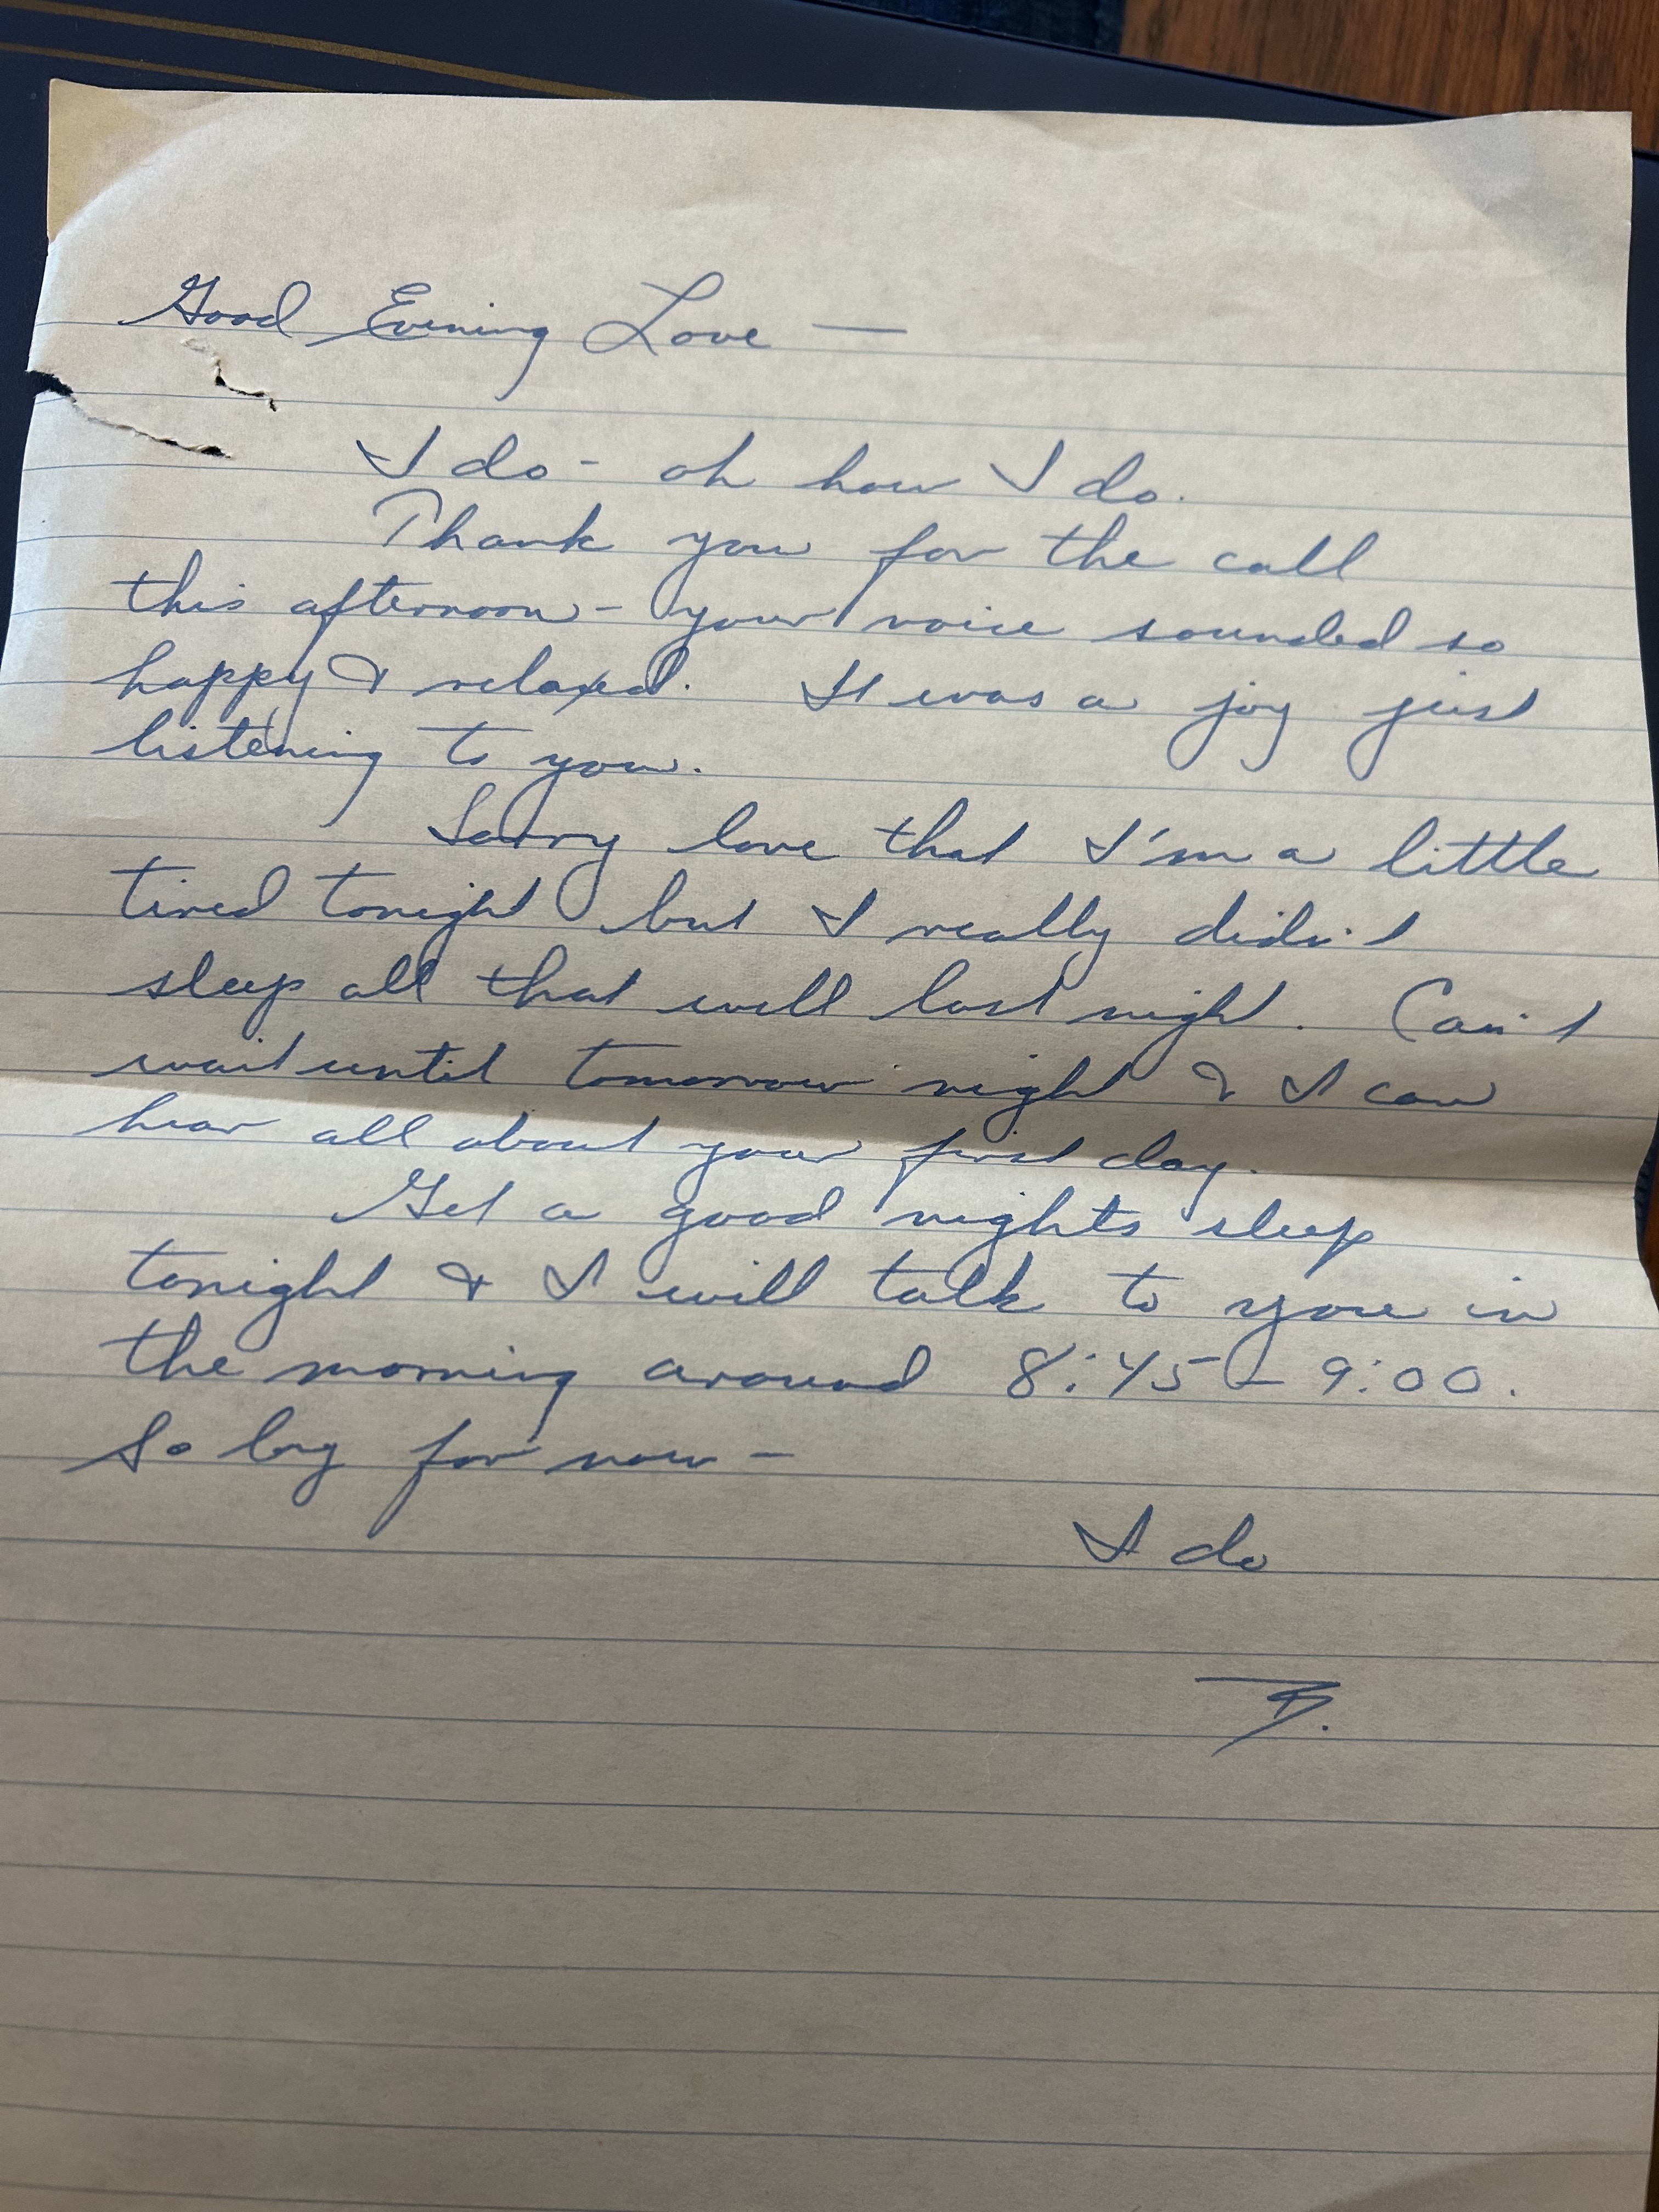 Good Evening Love —
I do - oh how I do.
Thank you for the call
this afternoon - your voice sounded so
happy & relaxed. It was a joy just
listening to you.
Sorry love that I'm a little
tired tonight but I really didn't
sleep all that well last night. Can't
wait until tomorrow night & I can
hear all about your first day.
Get a good nights sleep
tonight & I will talk to you in
the morning around 8:45 - 9:00.
So long for now -
I do
B.